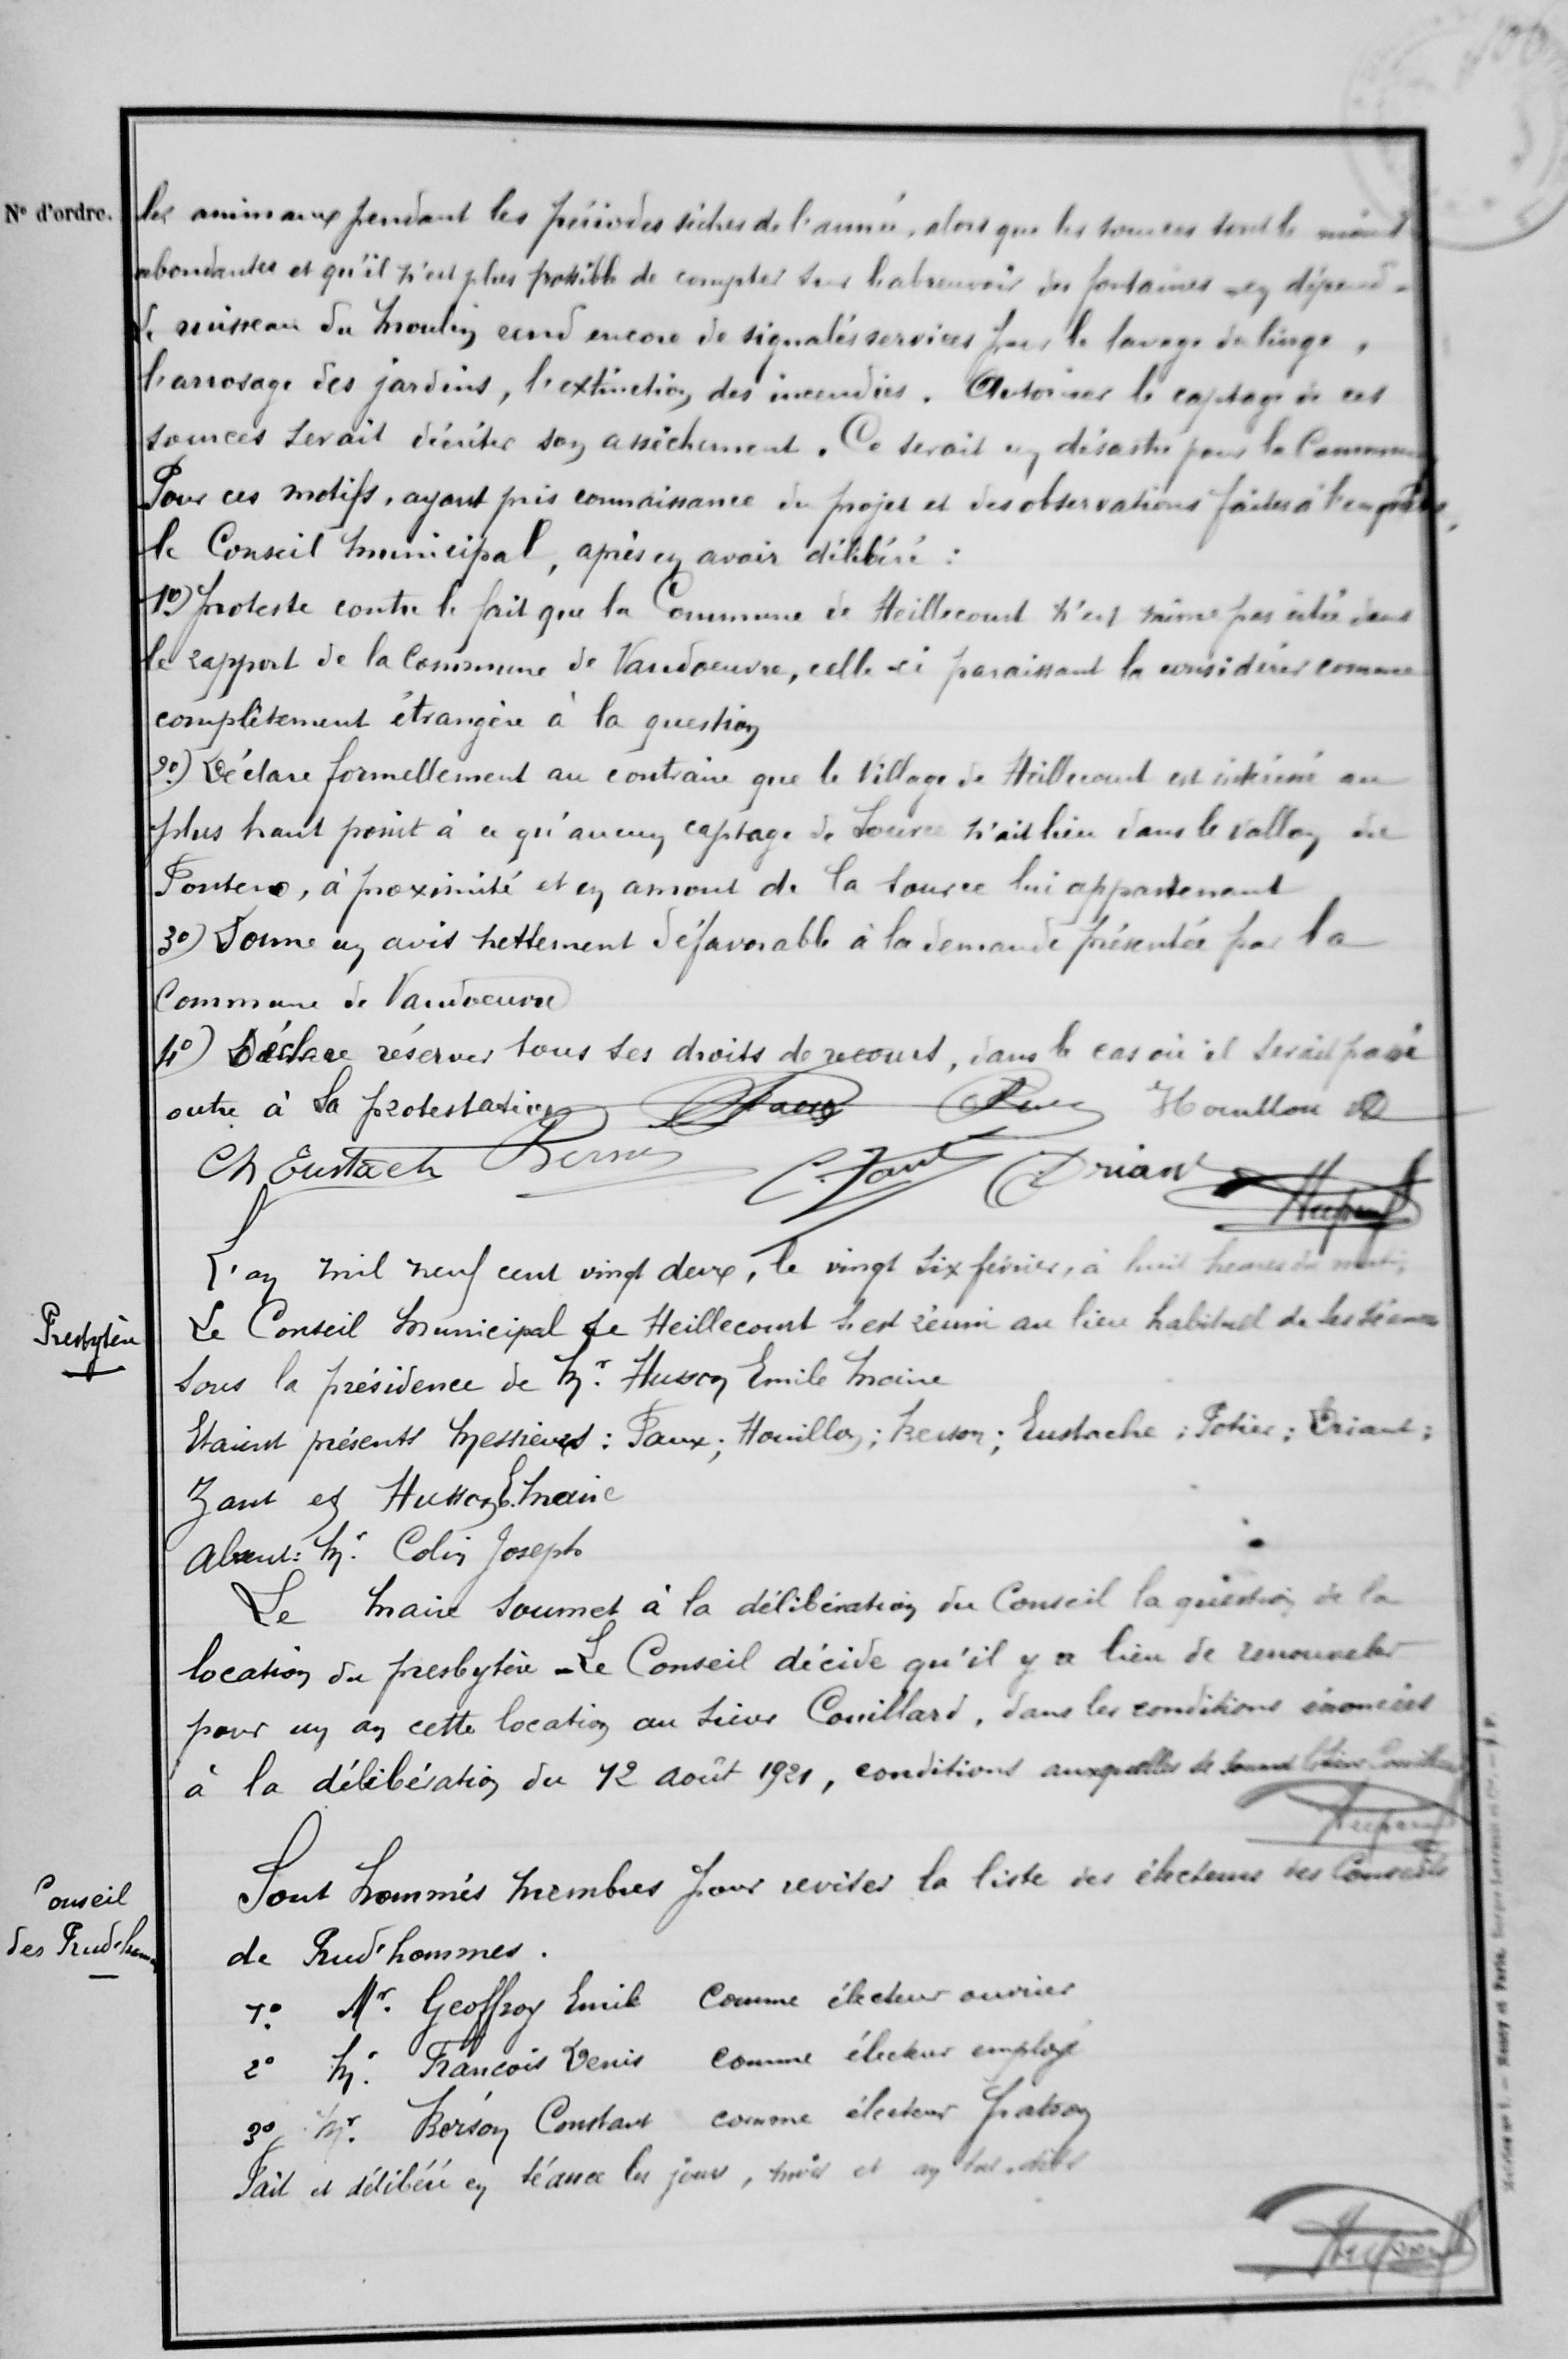 N° d'ordre.
les animaux pendant les périodes sèches de l'année, alors que les sources sont le moins
abondantes et qu'il n'est plus possible de compter sur l'abreuvoir des fontaines en dépend -
Le ruisseau du Moulin rend encore de signalés services pour le lavage du linge,
l'arrosage des jardins, l'extinction des incendies. Autoriser le captage de ces
sources serait décréter son assèchement. Ce serait un désastre pour la Commune
Pour ces motifs, ayant pris connaissance du projet et des observations faites à l'enquête,
le Conseil Municipal, après en avoir délibéré :
1°) Proteste contre le fait que la Commune de Heillecourt n'est même pas citée dans
le rapport de la Commune de Vandoeuvre, celle-ci paraissant la considérer comme
complètement étrangère à la question
2°) Déclare formellement au contraire que le Village de Heillecourt est intéressé au
plus haut point à ce qu'aucun captage de Source n'ait lieu dans le vallon du
Ponteno, à proximité et en amont de la source lui appartenant
3°) Donne un avis nettement défavorable à la demande présentée par la
Commune de Vandoeuvre
4°) Déclare réserver tous ses droits de recours, dans le cas où il serait passé
outre à sa protestation Houillon
Ch Eustach C. Zant Driant
L'an mil neuf cent vingt deux, le vingt six février, à huit heures du matin,
Presbytère
Le Conseil Municipal de Heillecourt s'est réuni au lieu habituel de ses séances
sous la présidence de Mr. Husson Emile Maire
Etaient présents Messieurs : Faux ; Houillon ; Kerson ; Eustache ; Potier ; Driant ;
Zant et Husson E. Maire
Absent : Mr. Colin Joseph
Le Maire soumet à la délibération du Conseil la question de la
location du presbytère - Le Conseil décide qu'il y a lieu de renouveler
pour un an cette location au sieur Couillard, dans les conditions énoncées
à la délibération du 12 août 1921, conditions auxquelles se soumet le sieur Couillard
Conseil
des Prud'hommes
Sont nommés membres pour reviser la liste des électeurs des Conseils
de Prud'hommes.
1° Mr. Geoffroy Emile comme électeur ouvrier
2° Mr. François Denis comme électeur employé
3° Mr. Kerson Constant comme électeur patron
Fait et délibéré en séance les jours, mois et an sus-dits